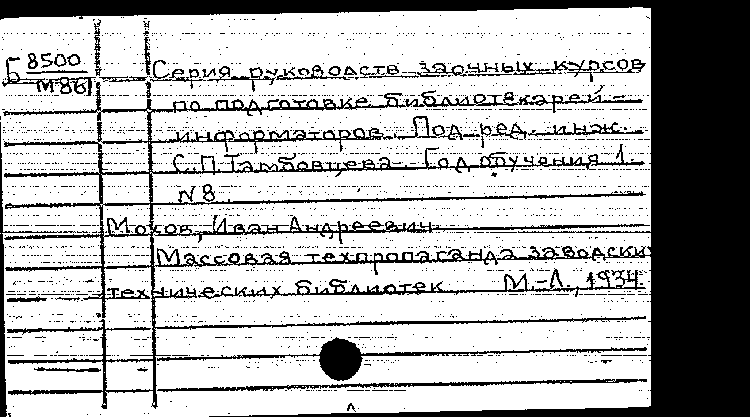 Б 8500
М861
Серия руководств заочных курсов
по подготовке библиотекарей-
информаторов. Под ред. инж.
С.П. Тамбовцева. Год обучения 1.
N 8.
Мохов, Иван Андреевич.
Массовая техпропаганда заводски
технических библиотек. М.-Л., 1934.